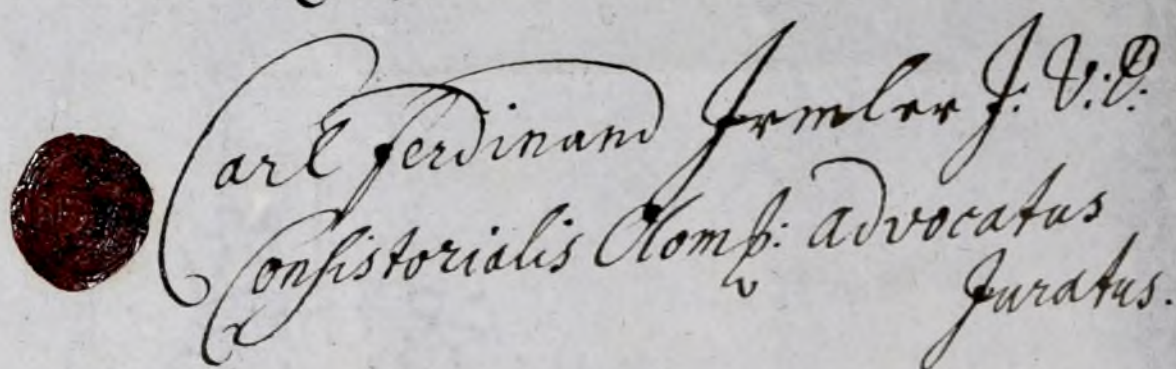 Carl Ferdinand Irmler J: V: D:
Consistorialis Olom: advocatus
Juratus.